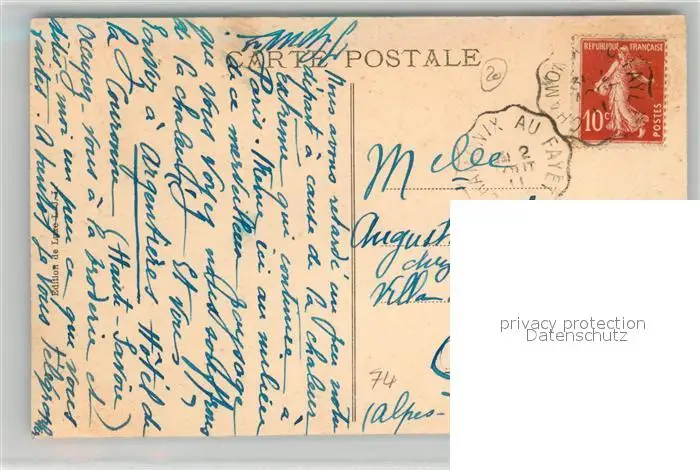 CARTE POSTALE
20
REPUBLIQUE FRANÇAISE
10c
POSTES
CHAMONIX AU FAYET
Nous avons retardé un peu notre
départ à cause de la chaleur
extrême qui continue à
Paris. Même ici au milieu
de ce merveilleux paysage
que vous voyez nous souffrons
de la chaleur. Et vous?
à Argentières Hôtel de
la Couronne (Haute-Savoie)
vous à la broderie et
dites moi un peu ce que vous
faites. vous
Edition de Luxe
Melle
August
chez
Villa
74
(Alpes-
privacy protection
Datenschutz